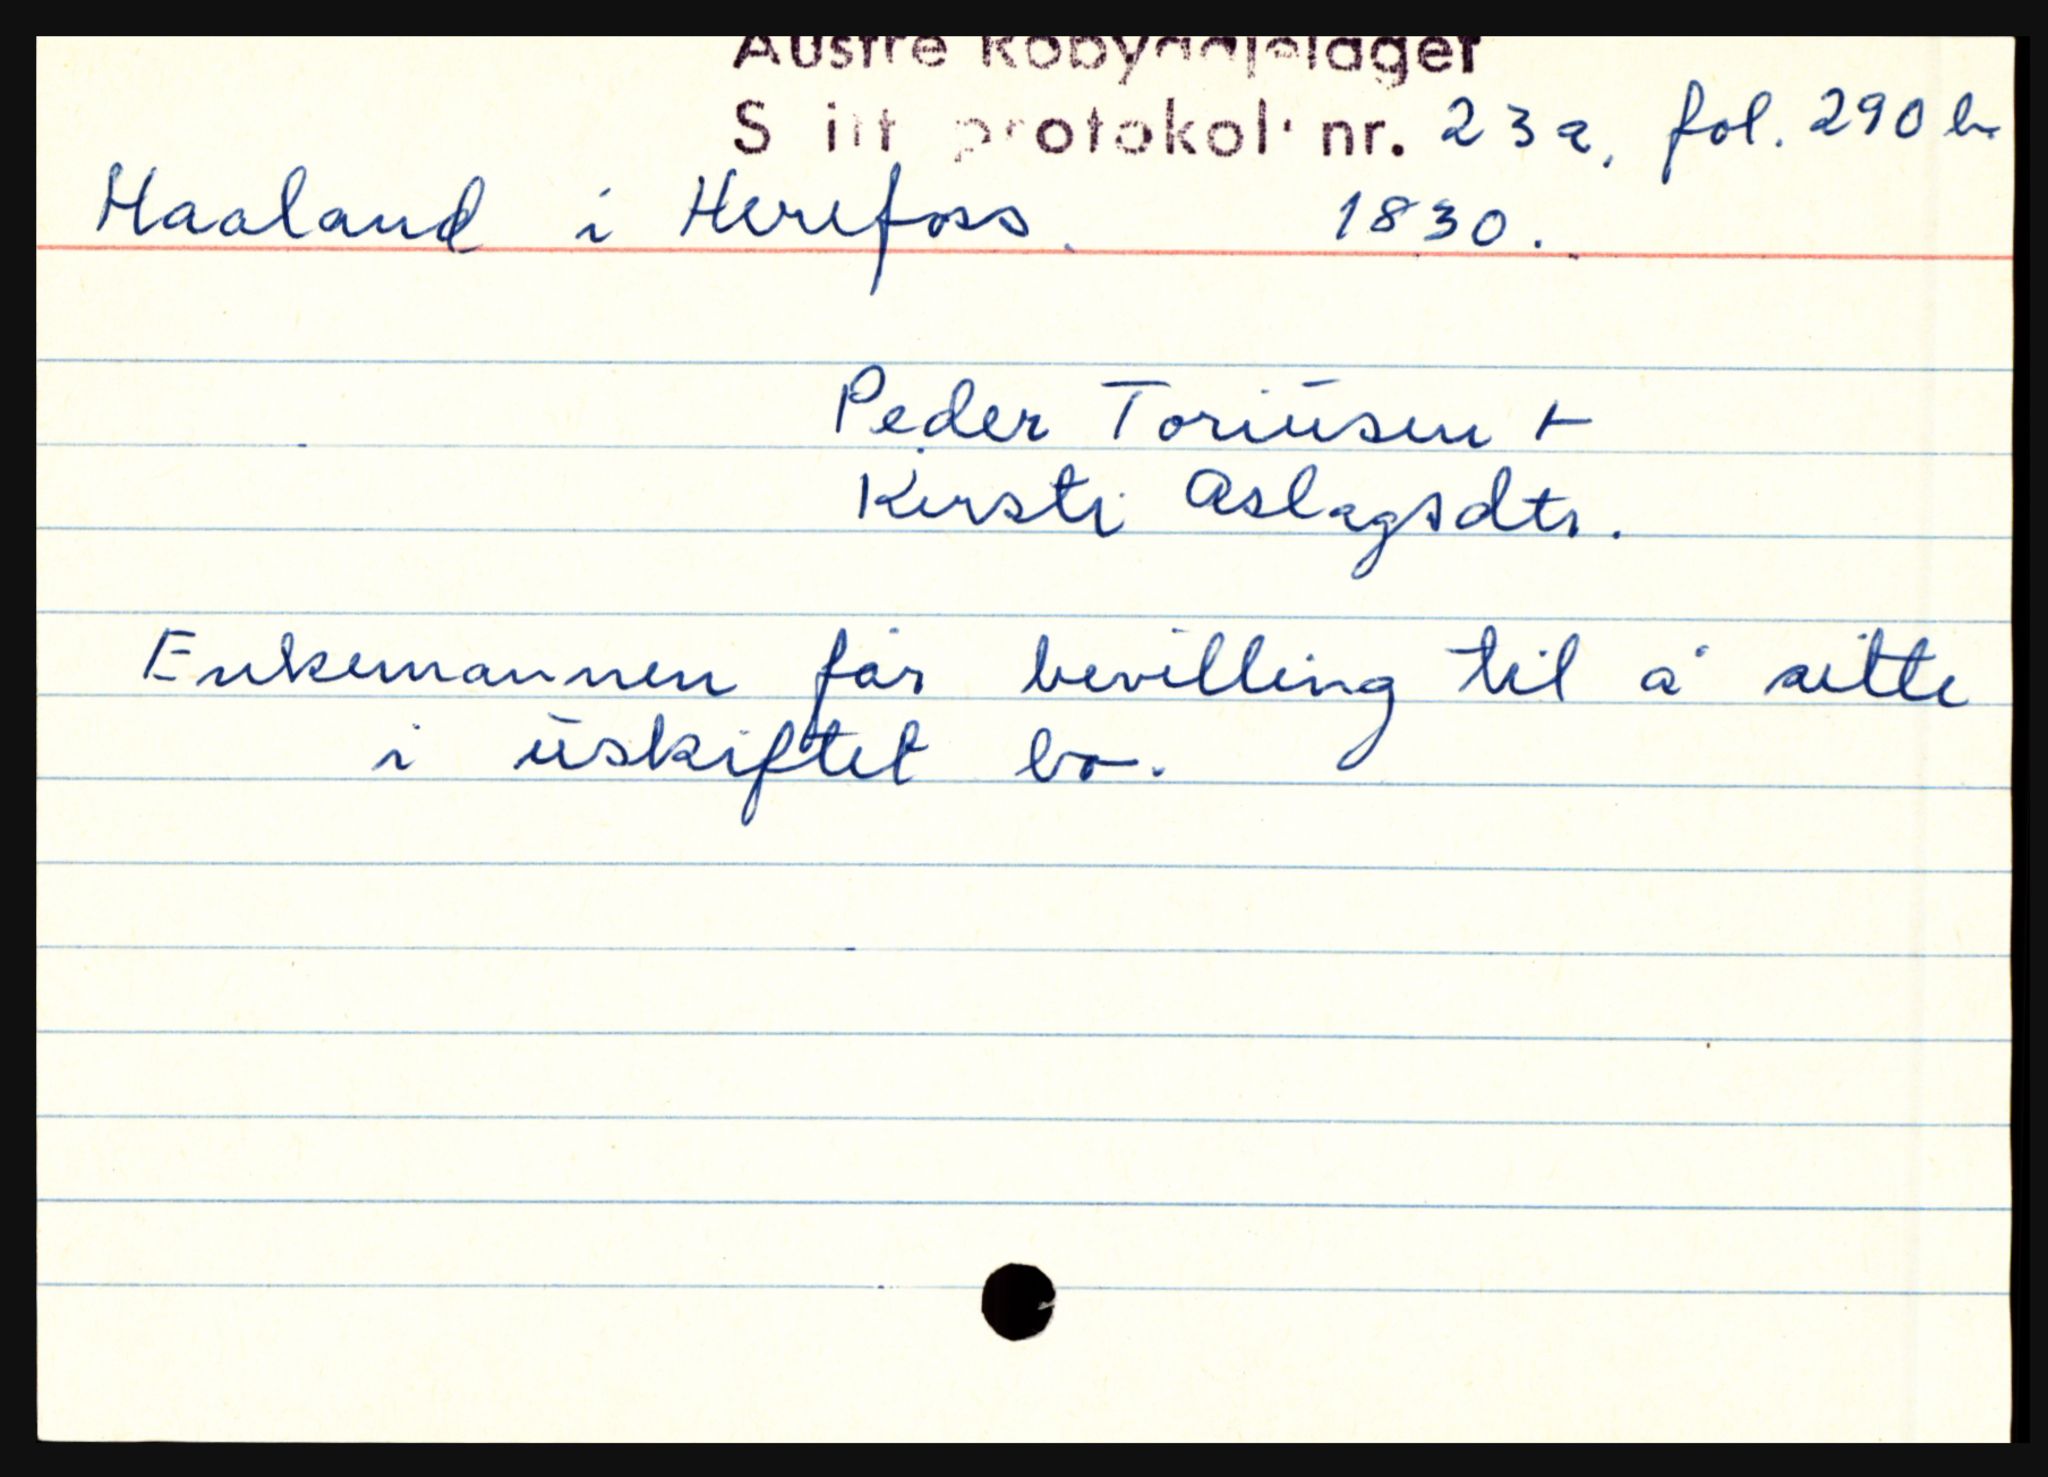 Austre Robyggjelaget
S itt protokol nr. 23a, fol. 290 b
Haaland i Herefoss. 1830.
Peder Toriusen +
Kirsti Aslagsdtr.
Enkemannen får bevilling til å sitte
i uskiftet bo.